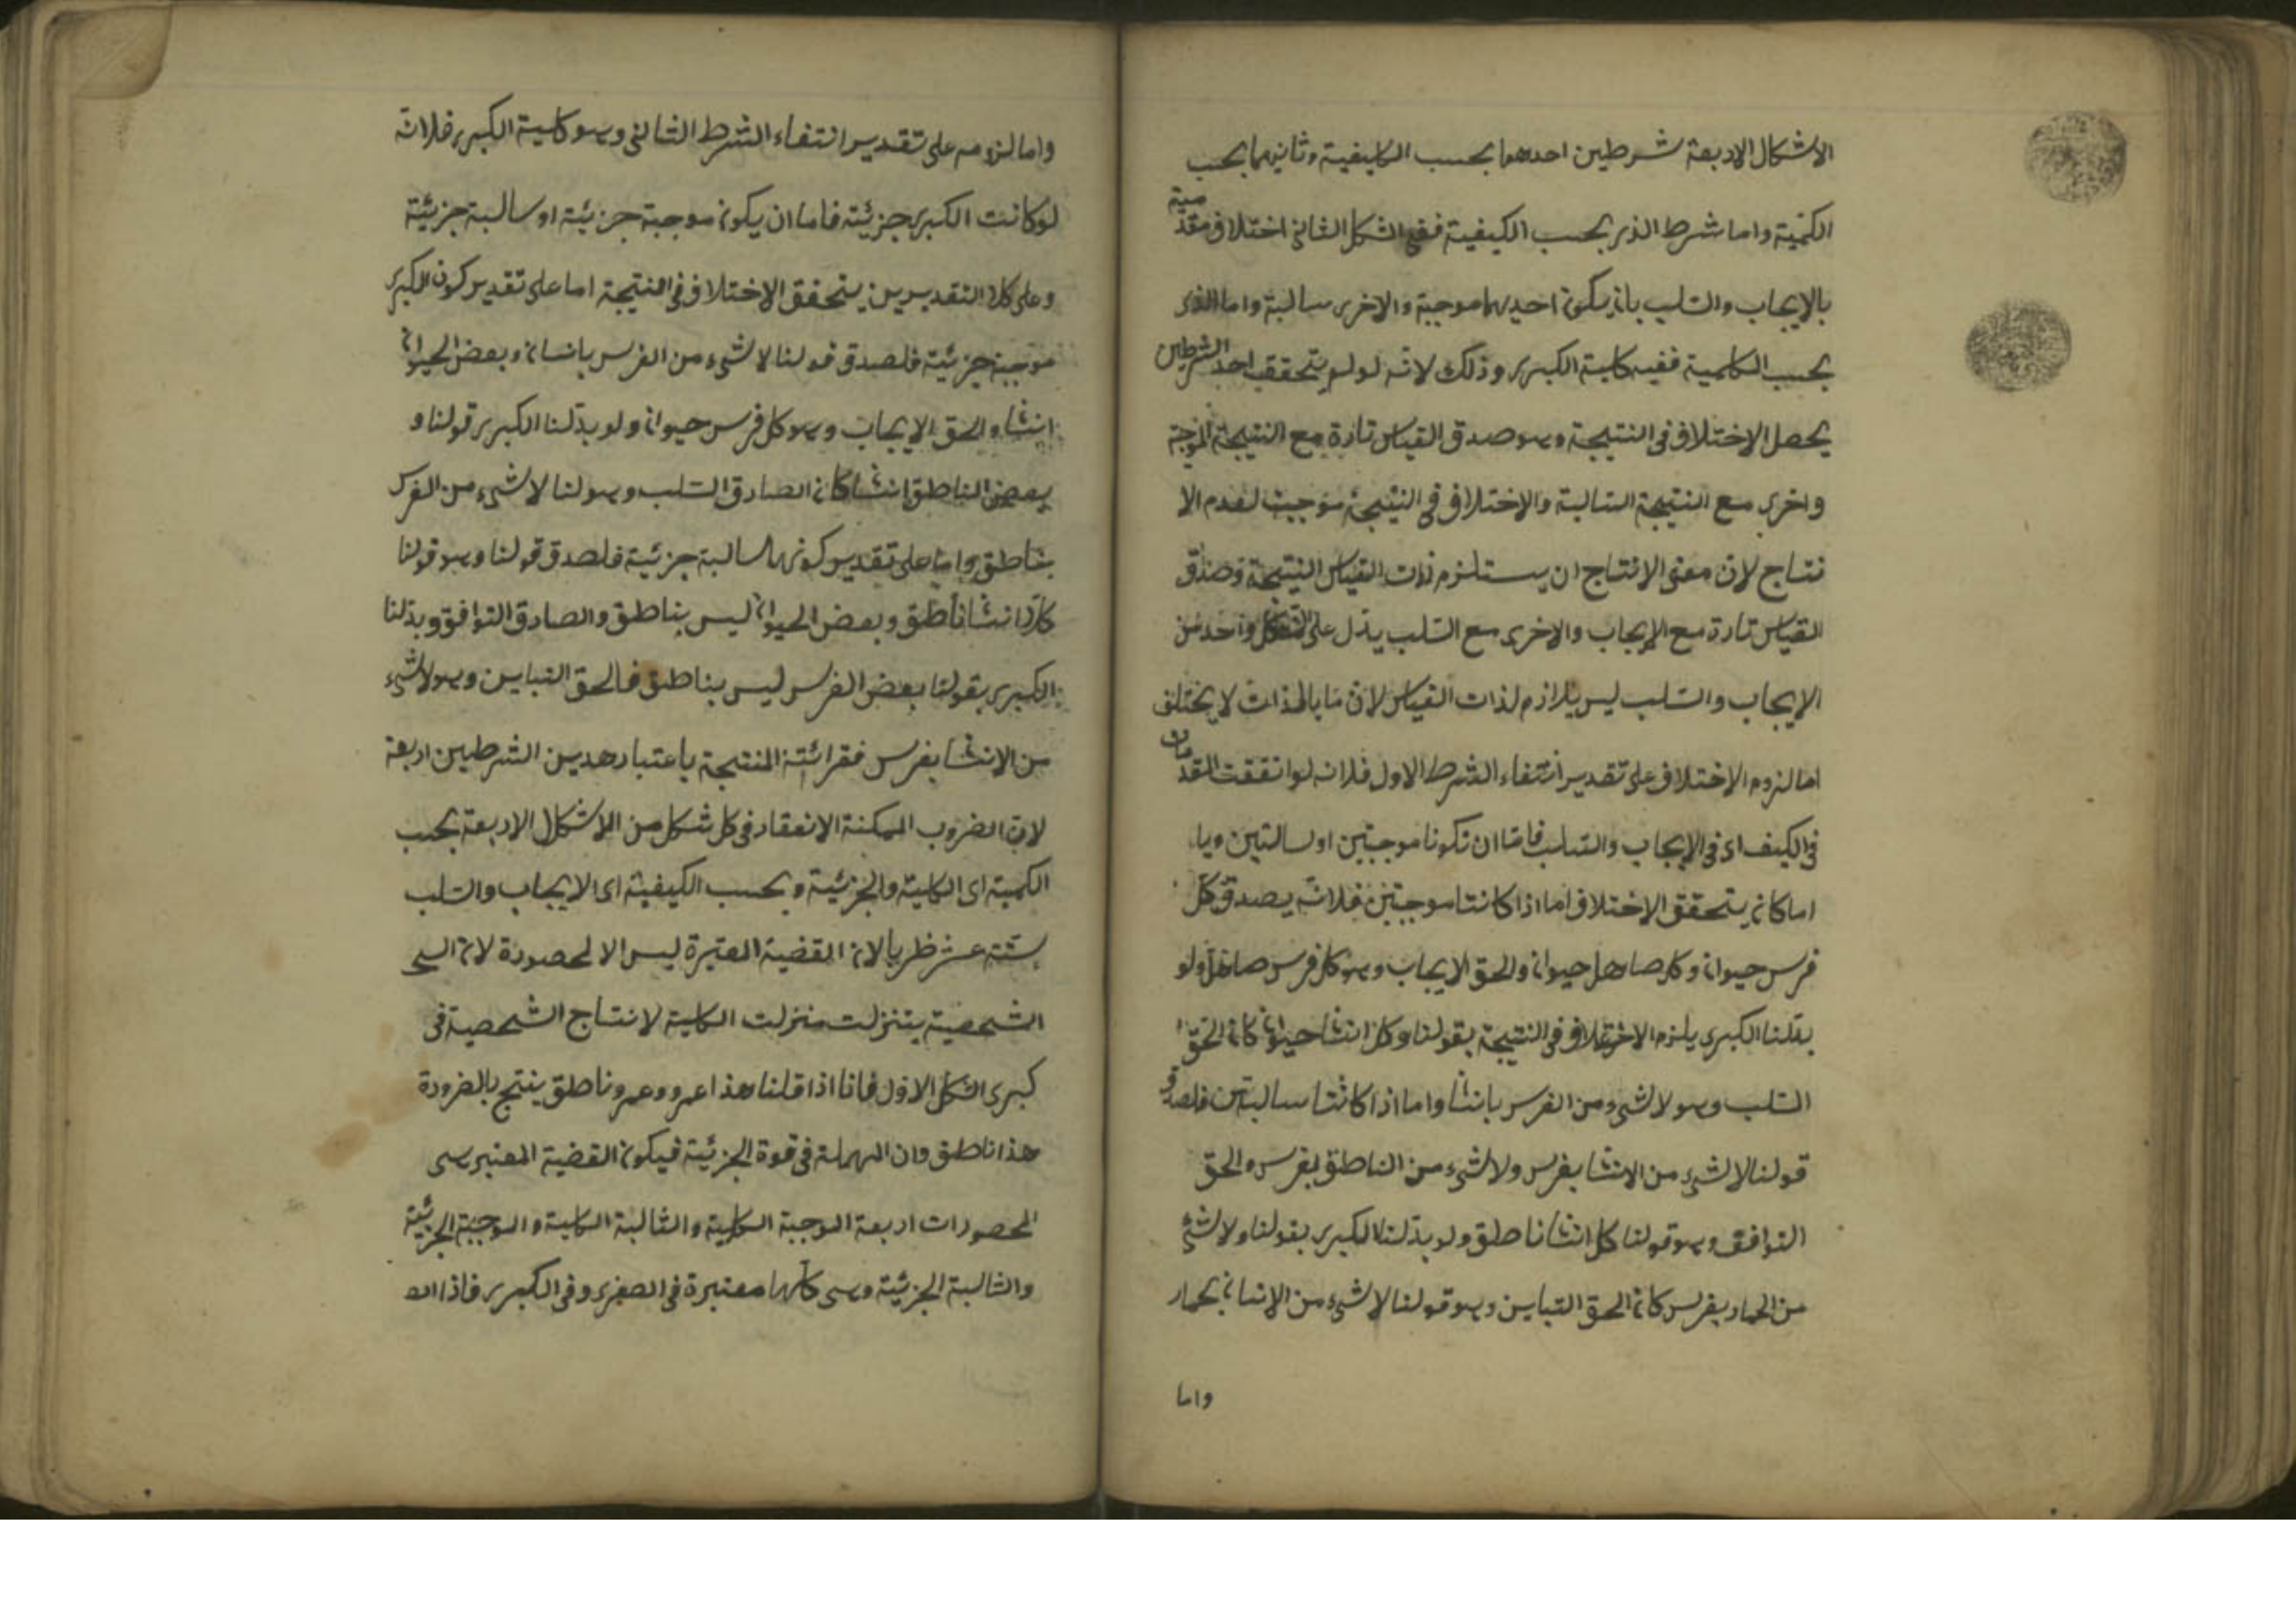 الاشكال الاربعة شرطين احدهما بحسب الكيفية وثانيهما بحسب
الكمية واما شرط الذى بحسب الكيفية ففى الشكل الثانى اختلاف مقدميه
بالايجاب والسلب بان يكون احديهما موجبة والاخرى سالبة واما الذى
بحسب الكمية ففيه كلية الكبرى وذلك لانه لو لم يتحقق احد الشرطين
يحصل الاختلاف فى النتيجة وهو صدق القياس تارة مع النتيجة الموجبة
واخرى مع النتيجة السالبة والاختلاف فى النتيجة موجب لعدم الا
نتاج لان معنى الانتاج ان يستلزم ذات القياس النتيجة وصدق
القياس تارة مع الايجاب والاخرى مع السلب يدل على ان كل واحد من
الايجاب والسلب ليس بلازم لذات القياس لان ما بالذات لا يختلف
اما لزوم الاختلاف على تقدير انتفاء الشرط الاول فلانه لو اتفقت المقدمتان
فى الكيف اى فى الايجاب والسلب فاما ان تكونا موجبتين او سالبتين وايا
اما كان يتحقق الاختلاف اما اذا كانتا موجبتين فلانه يصدق كل
فرس حيوان وكل صاهل حيوان والحق الايجاب وهو كل فرس صاهل ولو
بدلنا الكبرى يلزم الاختلاف فى النتيجة بقولنا وكل انسان حيوان كان الحق
السلب وهو لا شىء من الفرس بانسان واما اذا كانتا سالبتين فلصدق
قولنا لا شىء من الانسان بفرس ولا شىء من الناطق بفرس والحق
التوافق وهو قولنا كل انسان ناطق ولو بدلنا الكبرى بقولنا ولا شىء
من الحمار بفرس كان الحق التباين وهو قولنا لا شىء من الانسان بحمار
واما
واما لزومه على تقدير انتفاء الشرط الثانى وهو كلية الكبرى فلانه
لو كانت الكبرى جزئية فاما ان يكون موجبة جزئية او سالبة جزئية
وعلى كلا التقديرين يتحقق الاختلاف فى النتيجة اما على تقدير كون الكبرى
موجبة جزئية فلصدق قولنا لا شىء من الفرس بانسان وبعض الحيوان
انسان والحق الايجاب وهو كل فرس حيوان ولو بدلنا الكبرى قولنا و
بعض الناطق انسان كان الصادق السلب وهو لنا لا شىء من الفرس
بناطق واما على تقدير كونها سالبة جزئية فلصدق قولنا وهو قولنا
كل انسان ناطق وبعض الحيوان ليس بناطق والصادق التوافق وبدلنا
الكبرى بقولنا بعض الفرس ليس بناطق فالحق التباين وهو لا شىء
من الانسان بفرس المنتجة باعتبار هدين الشرطين اربعة
لان الضروب الممكنة الانعقاد فى كل شكل من الاشكال الاربعة بحسب
الكمية اى الكلية والجزئية وبحسب الكيفية اى الايجاب والسلب
ستة عشر لان القضية المعتبرة ليس الا لمحصورة لان
الشخصية يتنزلت منزلت الكلية لانتاج الشخصية فى
كبرى الشكل الاول فانا اذا قلنا هذا عمرو وعمرو ناطق ينتج بالضرورة
هذا ناطق وان المهملة فى قوة الجزئية فيكون القضية المعتبر هى
المحصورات اربعة الموجبة الكلية والسالبة الكلية والموجبة الجزئية
والسالبة الجزئية وهى كلها معتبرة فى الصغرى وفى الكبرى فاذا